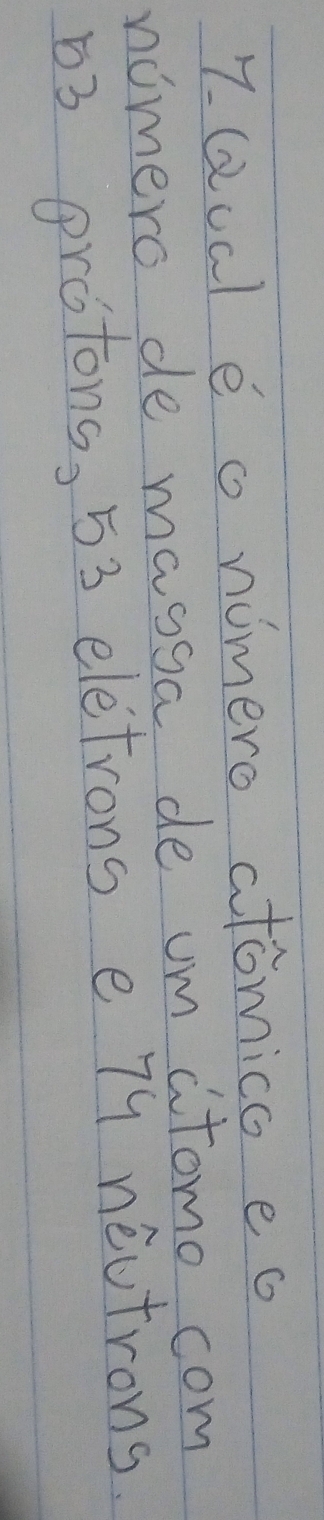 7- Qual é o número atômico e o
número de massa de um átomo com
53 prótons, 53 elétrons e 74 nêutrons.